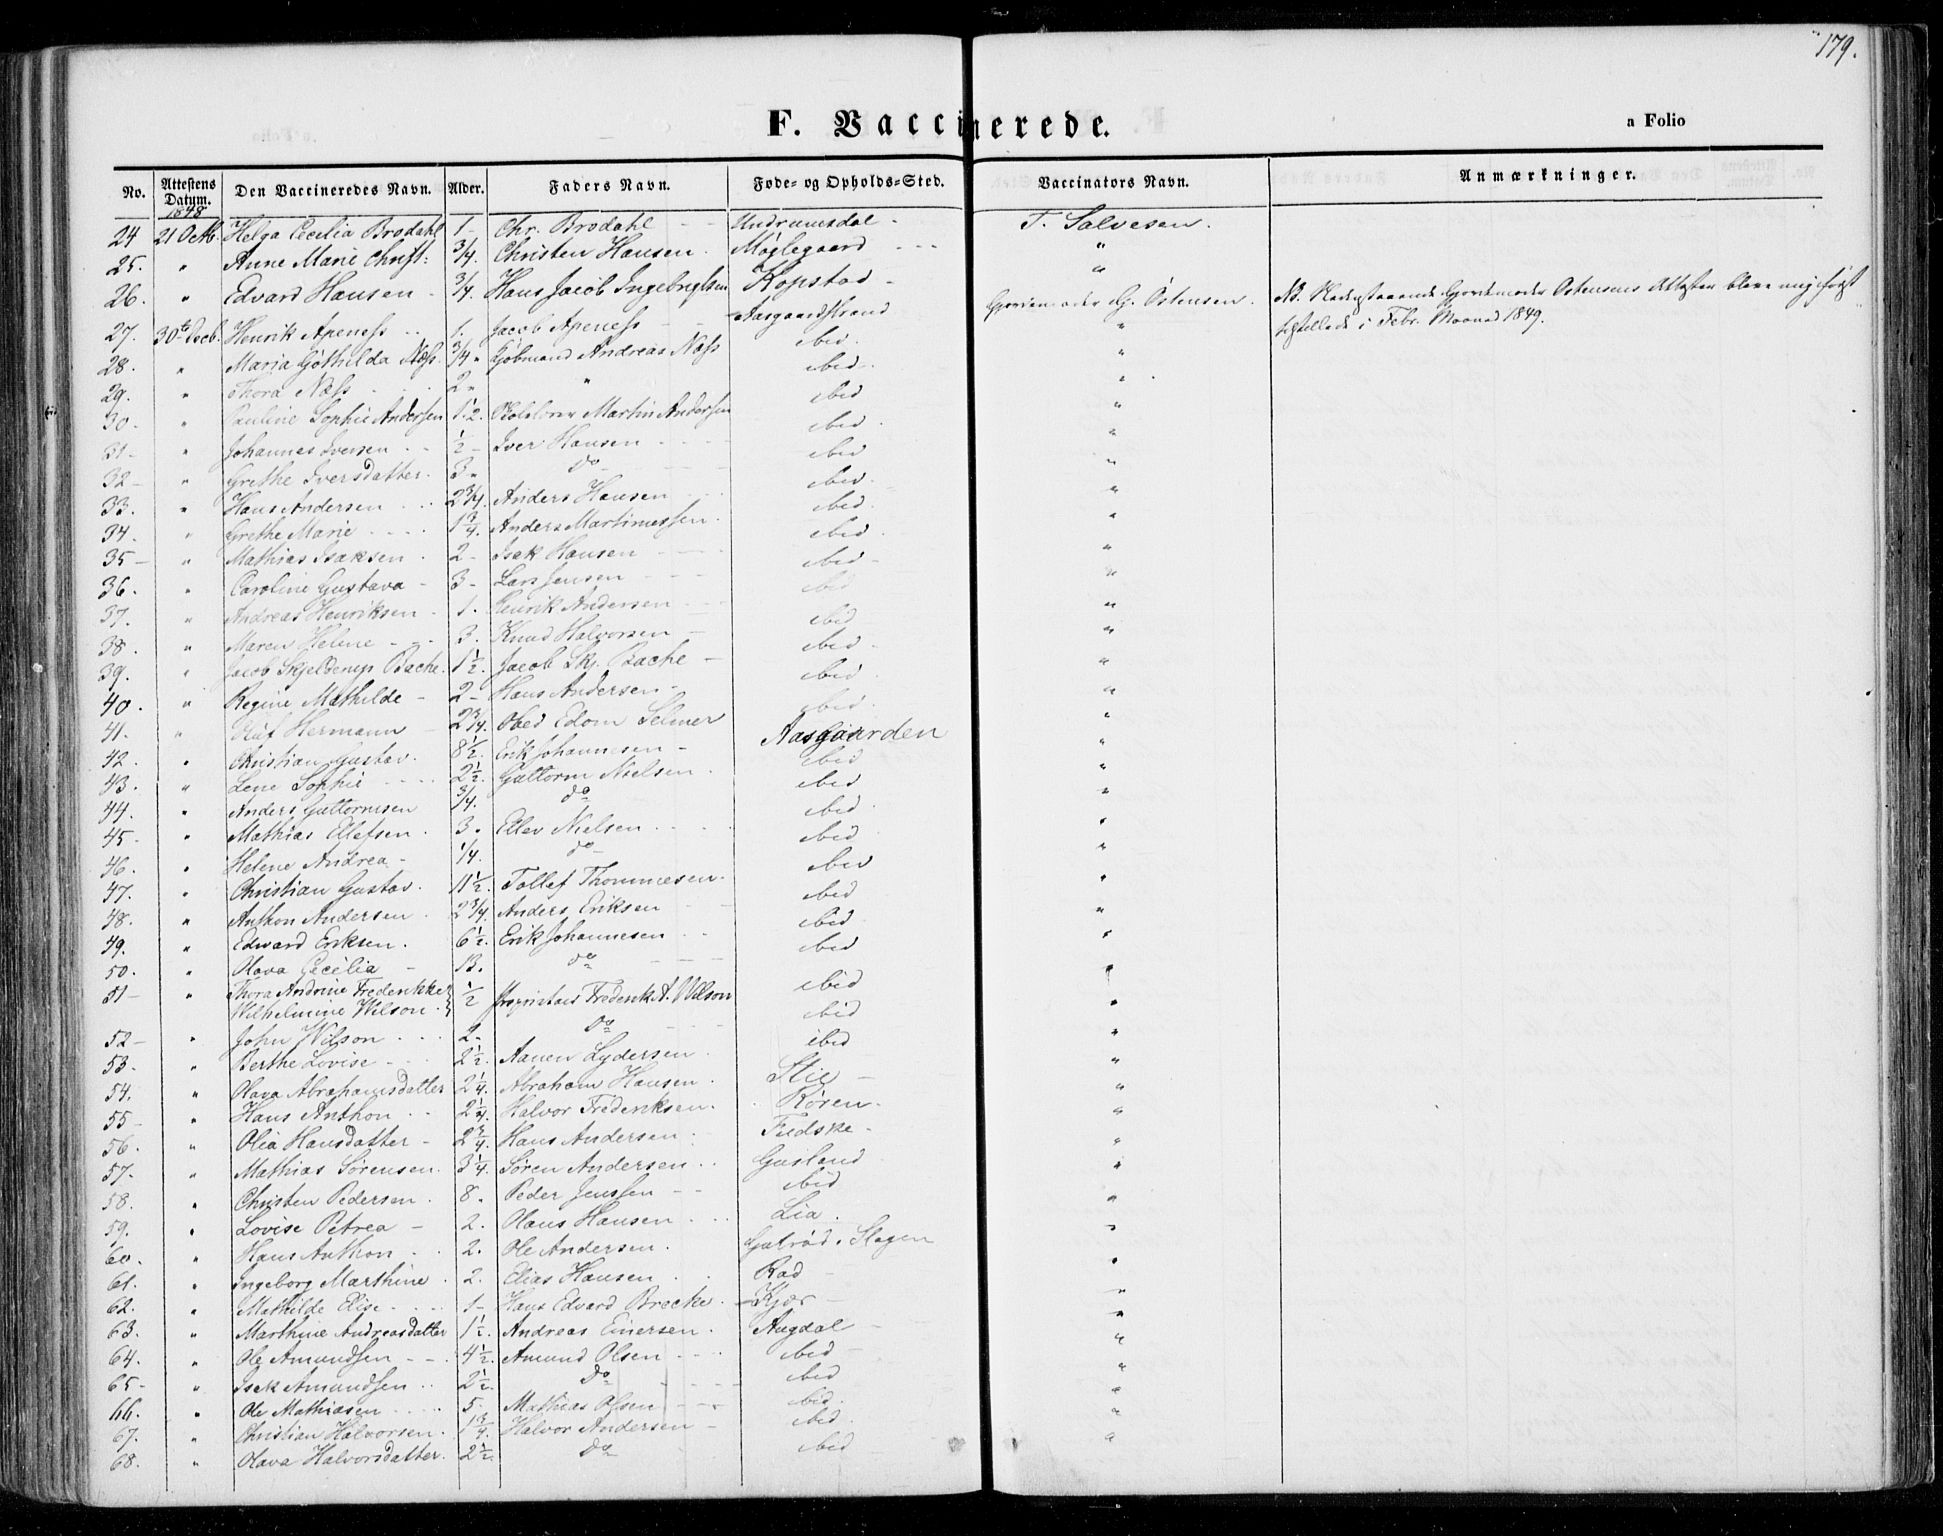 179.
F. Vaccinerede.
a Folio
No. Attestens Datum. Den Vaccineredes Navn. Alder. Faders Navn. Føde- og Opholds-Sted. Vaccinators Navn. Anmærkninger.
1848
24 21 Octb. Helga Cecilia Brodahl 1 - Chr. Brodahl - - Undrumsdal - T. Salvesen.
25. " Anne Marie Christ: 3/4. Christen Hansen. Møglegaard - - - "
26. " Edvard Hansen - 3/4. Hans Jacob Ingebrigtsen Kopstad - "
27. 30te Decb. Henrik Apeness - - 1. Jacob Apeness - Aasgaardstrand Gjordemoder G. Østensen. NB. Gjordemoder Østensens Attester bleve mig først
tilstillede i Febr. Maaned 1849.
28. " Maria Gøthilda Næss. 3/4 " Kjøbmand Andreas Næss ibid. "
29. " Thora Næss - - - 2 " " ibid. "
30. " Pauline Sophie Andersen 1 1/2. Martin Andersen ibid "
31 - " Johannes Iversen - - 1/2 - Iver Hansen - - - - ibid. "
32 - " Grethe Iversdatter. 3 " Do - - - ibid "
33. " Hans Andersen - - 2 3/4. Anders Hansen - - ibid. "
34. " Grethe Marie - - - - 1 3/4. Anders Martinussen. ibid. "
35 - " Mathias Isaksen. 2 - Isak Hansen - - - - ibid. "
36. " Caroline Gustava - 3 - Lars Jensen - - - ibid - "
37. " Andreas Henriksen - 1. Henrik Andersen - - - ibid "
38. " Maren Helene - - - 3. Knud Halvorsen - ibid - "
39. " Jacob Skjelderup Bache. 1 1/2. Jacob Skj. Bache - ibid. "
40. " Regine Mathilde - 2 - Hans Andersen - ibid. "
41. " Oluf Hermann - 2 3/4. Obed Edom Selmer ibid. "
42. " Christian Gustav. 8 1/2. Erik Johannesen - Aasgaarden "
43. " Lene Sophie - - - - 2 1/2. Guttorm Nielsen. ibid "
44. " Anders Guttormsen 3/4. do ibid "
45. " Mathias Ellefsen. 3. Ellev Nielsen - - - - ibid. "
46. " Helene Andrea - 1/4. do - ibid. "
47. " Christian Gustav. 11 1/2. Tollef Thommesen. ibid "
48. " Anthon Andersen. 2 3/4. Anders Eriksen - ibid "
49. " Edward Eriksen. 6 1/2. Erik Johannesen - - ibid "
50. " Olava Cecilia - 13. do - - - ibid "
51 - " Thora Andrine Frederikke 1/2 Proprietair Frederik A. Wilson ibid "
Wilhelmine Wilson.
52 - " John Wilson - - - 2 - Do - - - ibid "
53. " Berthe Lovise - - - 2 1/2. Aanen Lydersen. ibid "
54. " Olava Abrahamsdatter 2 1/4. Abraham Hansen. Stie - "
55 - " Hans Anthon - - 2 1/4. Halvor Frederiksen. Røren. "
56. " Olea Hansdatter - 2 3/4. Hans Andersen - Fudske - "
57. " Mathias Sørensen. 3 1/4. Søren Andersen - - Gusland "
58. " Christen Pedersen. 8. Peder Jenssen - - ibid "
59. " Lovise Petrea - 2. Olaus Hansen - - - Lia. "
60. " Hans Anthon - - 2. Ole Andersen. Slagen "
61. " Ingeborg Marthine. 2. Elias Hansen. Rød - "
62. " Mathilde Elise - - - - 1 - Hans Edvard Brecke. Kjær - "
63. " Marthine Andreasdatter 1 1/2. Andreas Einersen. Augdal - "
64. " Ole Amundsen - - - 4 1/2. Amund Olsen - - - - ibid - "
65 - " Isak Amundsen - - 2 1/2. Do - - - - ibid "
66. " Ole Mathiasen - - - 5 - Mathias Olsen - - - ibid. "
67. " Christian Halvorsen. 1 3/4. Halvor Andersen - ibid. "
68. " Olava Halvorsdatter. 2 1/2. Do - ibid "